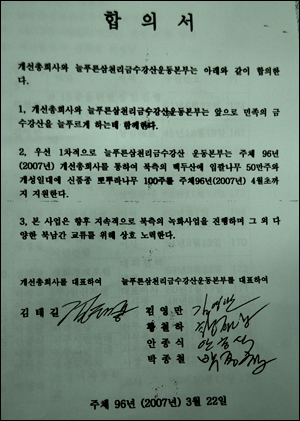 합의서
개선총회사와 늘푸른삼천리금수강산운동본부는 아래와 같이 합의한
다.
1, 개선총회사와 늘푸른삼천리금수강산운동본부는 앞으로 민족의 금
수강산을 늘푸르게 하는데 함께한다.
2, 우선 1차적으로 늘푸른삼천리금수강산 운동본부는 주체 96년
(2007년) 개선총회사를 통하여 북측의 백두산에 잎갈나무 50만주와
개성일대에 신품종 뽀뿌라나무 100주를 주체96년(2007년) 4월초까
지 지원한다.
3, 본 사업은 향후 지속적으로 북측의 녹화사업을 진행하며 그 외 다
양한 북남간 교류를 위해 상호 노력한다.
개선총회사를 대표하여 늘푸른삼천리금수강산운동본부를 대표하여
김태길 김영만
황철하
안종식
박종철
주체 96년 (2007년) 3월 22일